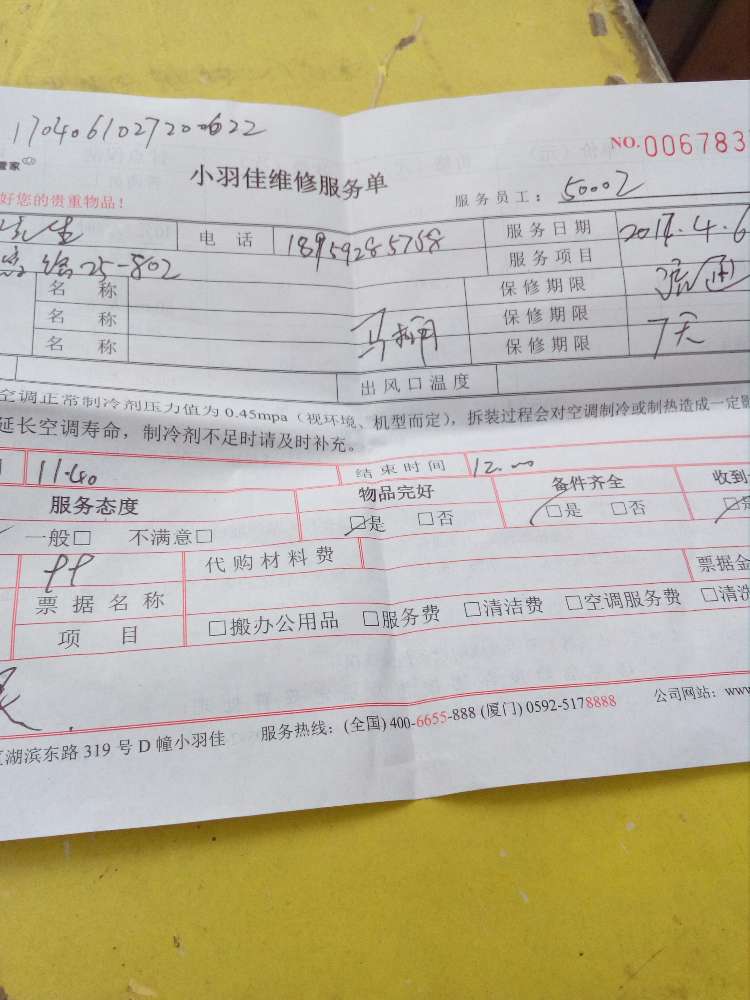 17040610272000622
管家
NO.006783
小羽佳维修服务单
服务员工：50002
好您的贵重物品！
电 话 18959285758 服务日期 2017.4.6
25-802 服务项目
名 称 保修期限
名 称 保修期限
名 称 保修期限 7天
出风口温度
空调正常制冷剂压力值为 0.45mpa（视环境、机型而定），拆装过程会对空调制冷或制热造成一定
延长空调寿命，制冷剂不足时请及时补充。
11.40 结束时间 12.00
服务态度 物品完好 备件齐全 收到
一般□ 不满意□ □是 □否 □是 □否
代购材料费
票据名称 票据金
项 目 □搬办公用品 □服务费 □清洁费 □空调服务费 □清洗
湖滨东路 319 号 D 幢小羽佳 服务热线：(全国) 400-6655-888 (厦门) 0592-5178888 公司网站：www